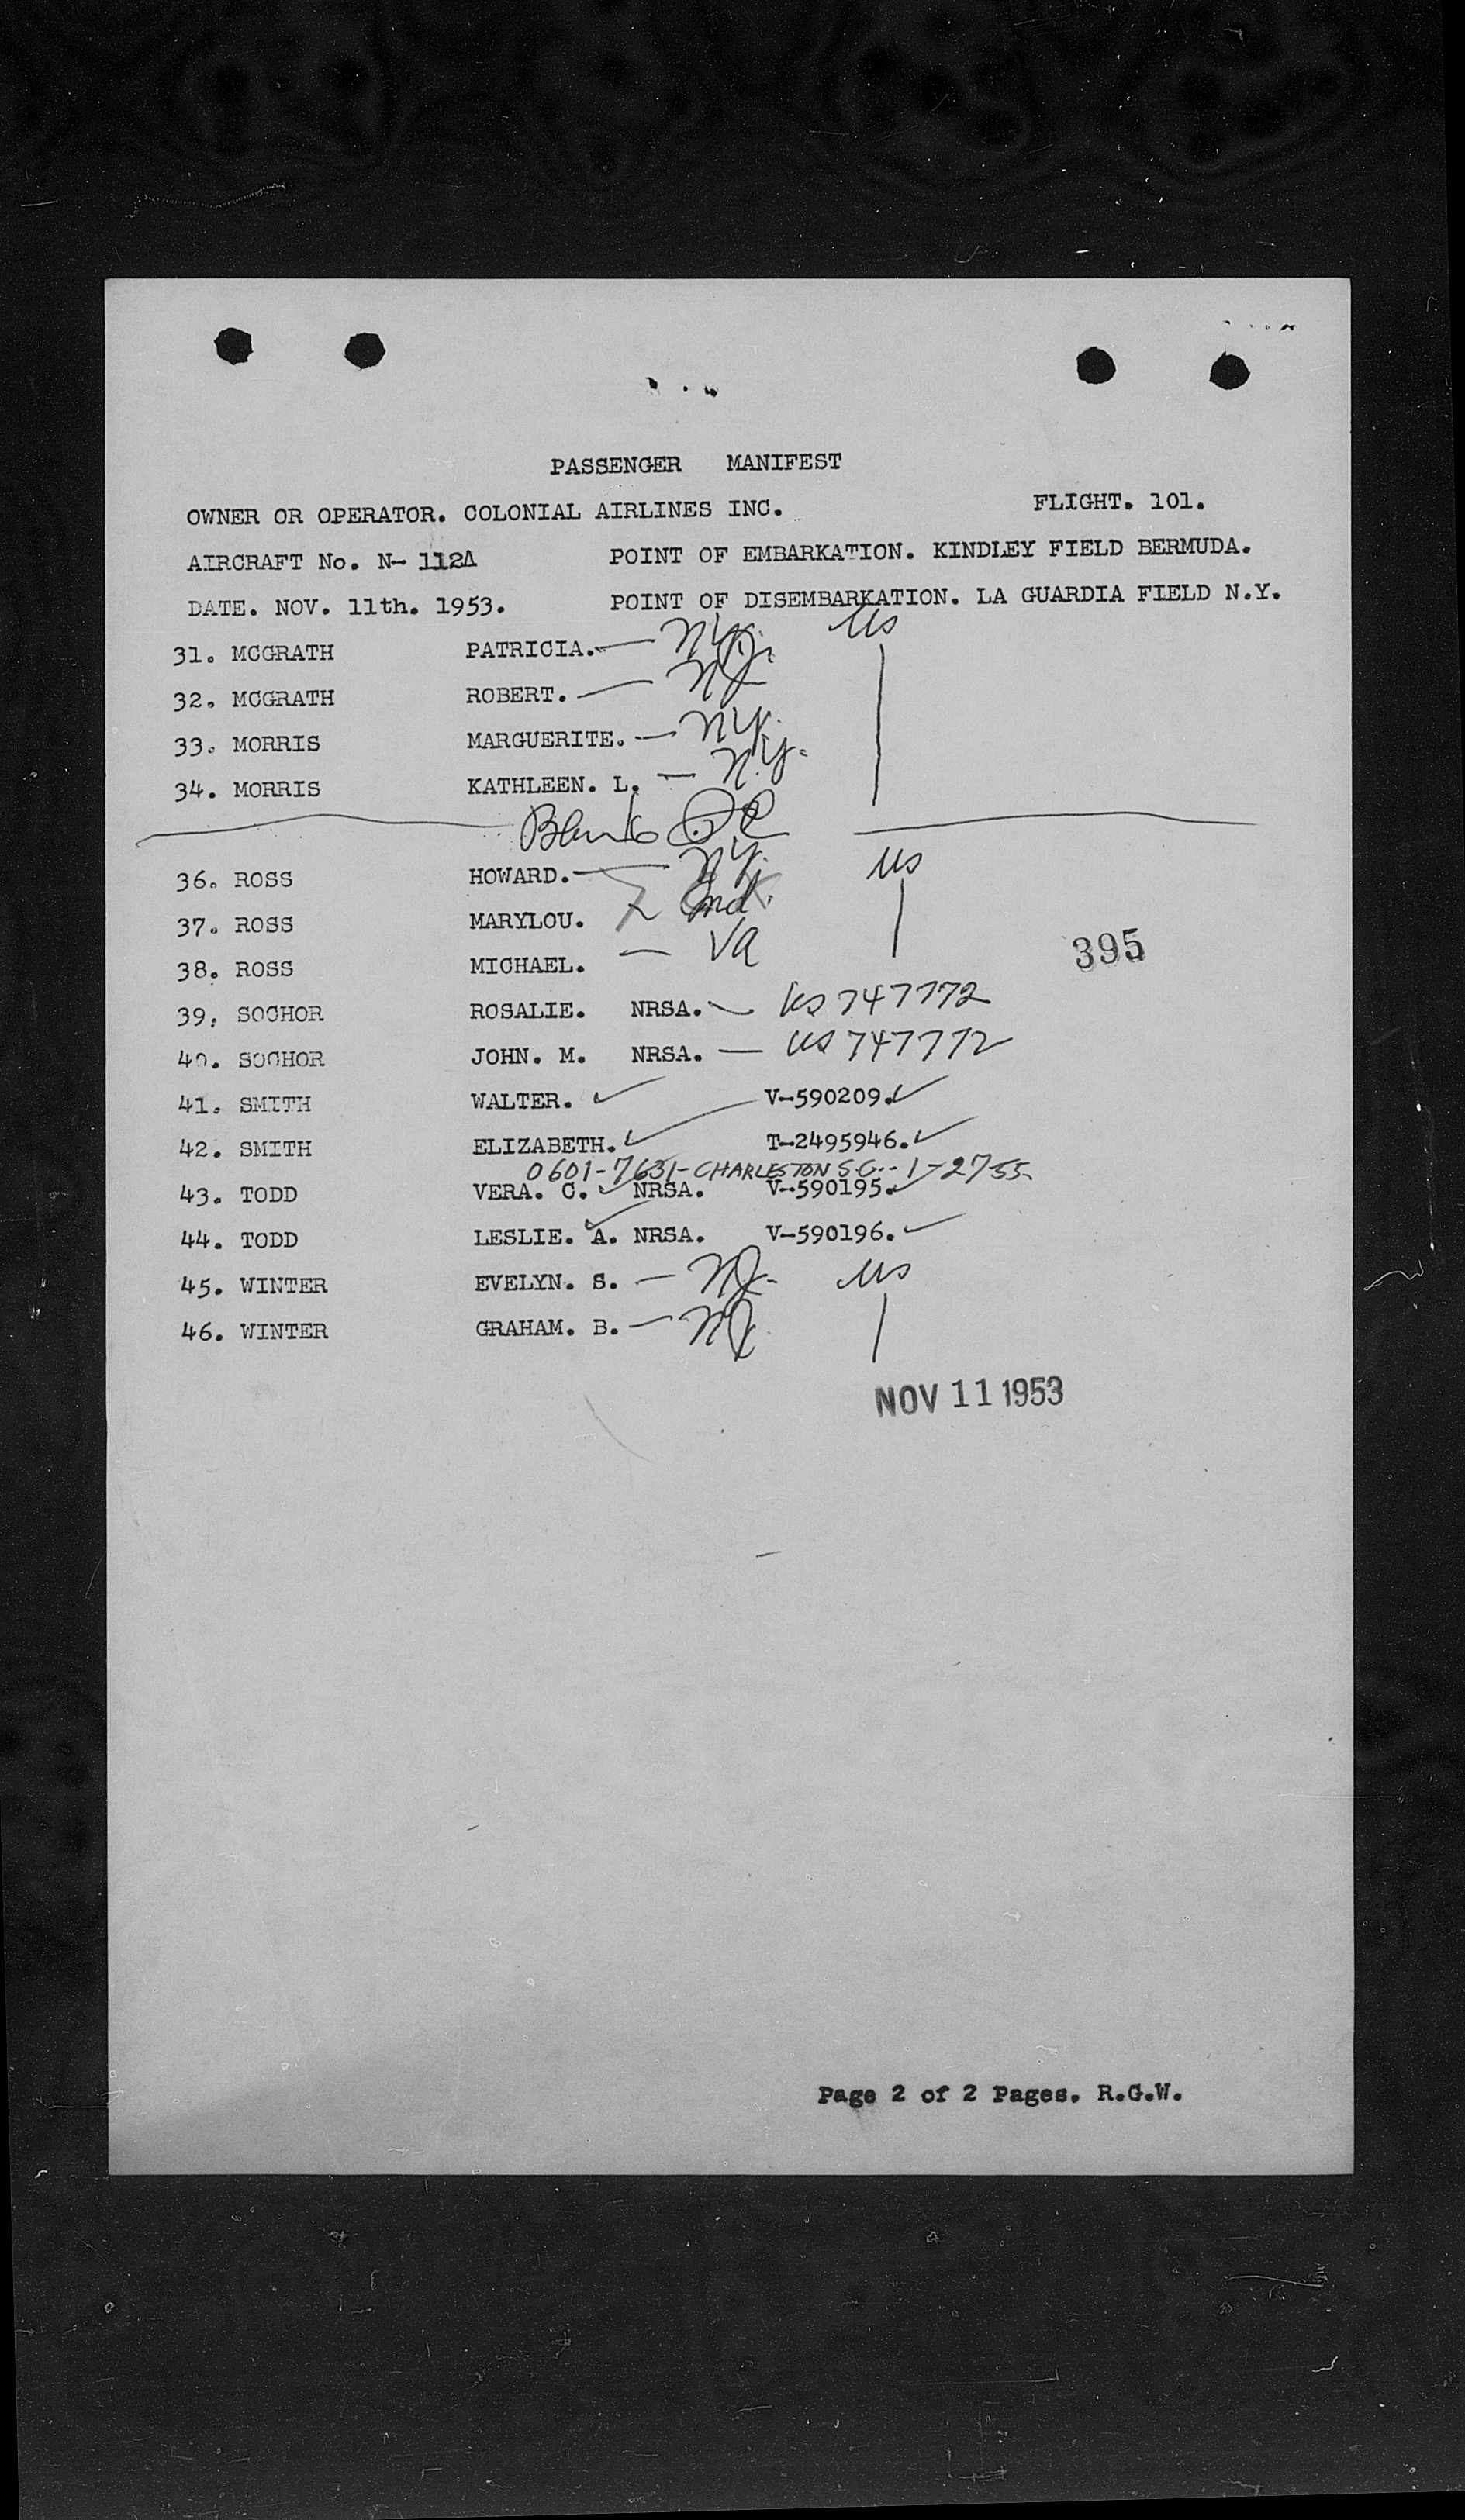 PASSENGER MANIFEST
OWNER OR OPERATOR. COLONIAL AIRLINES INC. FLIGHT. 101.
AIRCRAFT No. N- 112A POINT OF EMBARKATION. KINDLEY FIELD BERMUDA.
DATE. NOV. 11th. 1953. POINT OF DISEMBARKATION. LA GUARDIA FIELD N.Y.
31. MCGRATH PATRICIA. — US
32. MCGRATH ROBERT. — NJ
33. MORRIS MARGUERITE. — NY.
34. MORRIS KATHLEEN. L. — N.Y.
Blank
36. ROSS HOWARD. — NY. US
37. ROSS MARYLOU.
38. ROSS MICHAEL. — VA
395
39. SOCHOR ROSALIE. NRSA. — US 747772
40. SOCHOR JOHN. M. NRSA. — US 747772
41. SMITH WALTER. ✓ V-590209. ✓
42. SMITH ELIZABETH. ✓ T-2495946. ✓
0601-7631-CHARLESTON S.C.-- 1-27-55
43. TODD VERA. C. ✓ NRSA. V-590195. ✓
44. TODD LESLIE. A. ✓ NRSA. V-590196. ✓
45. WINTER EVELYN. S. — NJ- US
46. WINTER GRAHAM. B. — NJ
NOV 11 1953
Page 2 of 2 Pages. R.G.W.